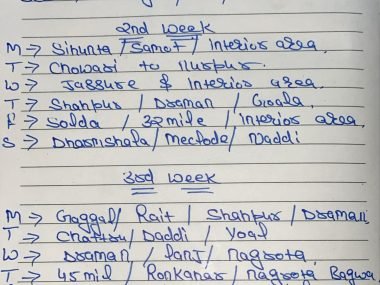 2nd Week
M → Sihunta / Samot / Interios area.
T → Chowari to Nurpur.
W → Jassure & Interios area.
T → Shahpur / Draman / Goala.
F → Solda / 32 mile / Interios area.
S → Dharmshala / Meclode / Daddi
3rd Week
M → Gaggal / Rait / Shahpur / Draman
T → Chattru / Daddi / Yoal
W → Draman / Lanj / nagrota
T → 45 mil / Ronkahar / nagrota Bagwa